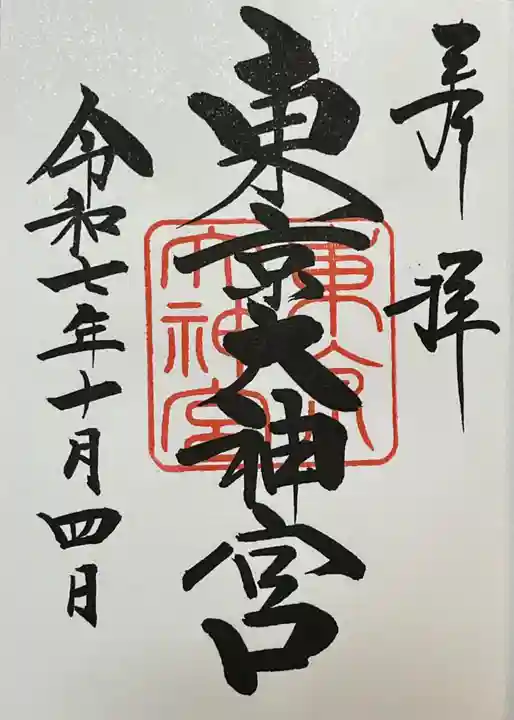 奉拝
東京大神宮
東京大神宮
令和七年十月四日